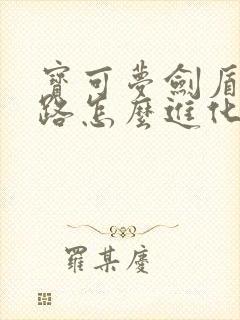 寶可夢劍盾
路怎麼進化
羅某慶